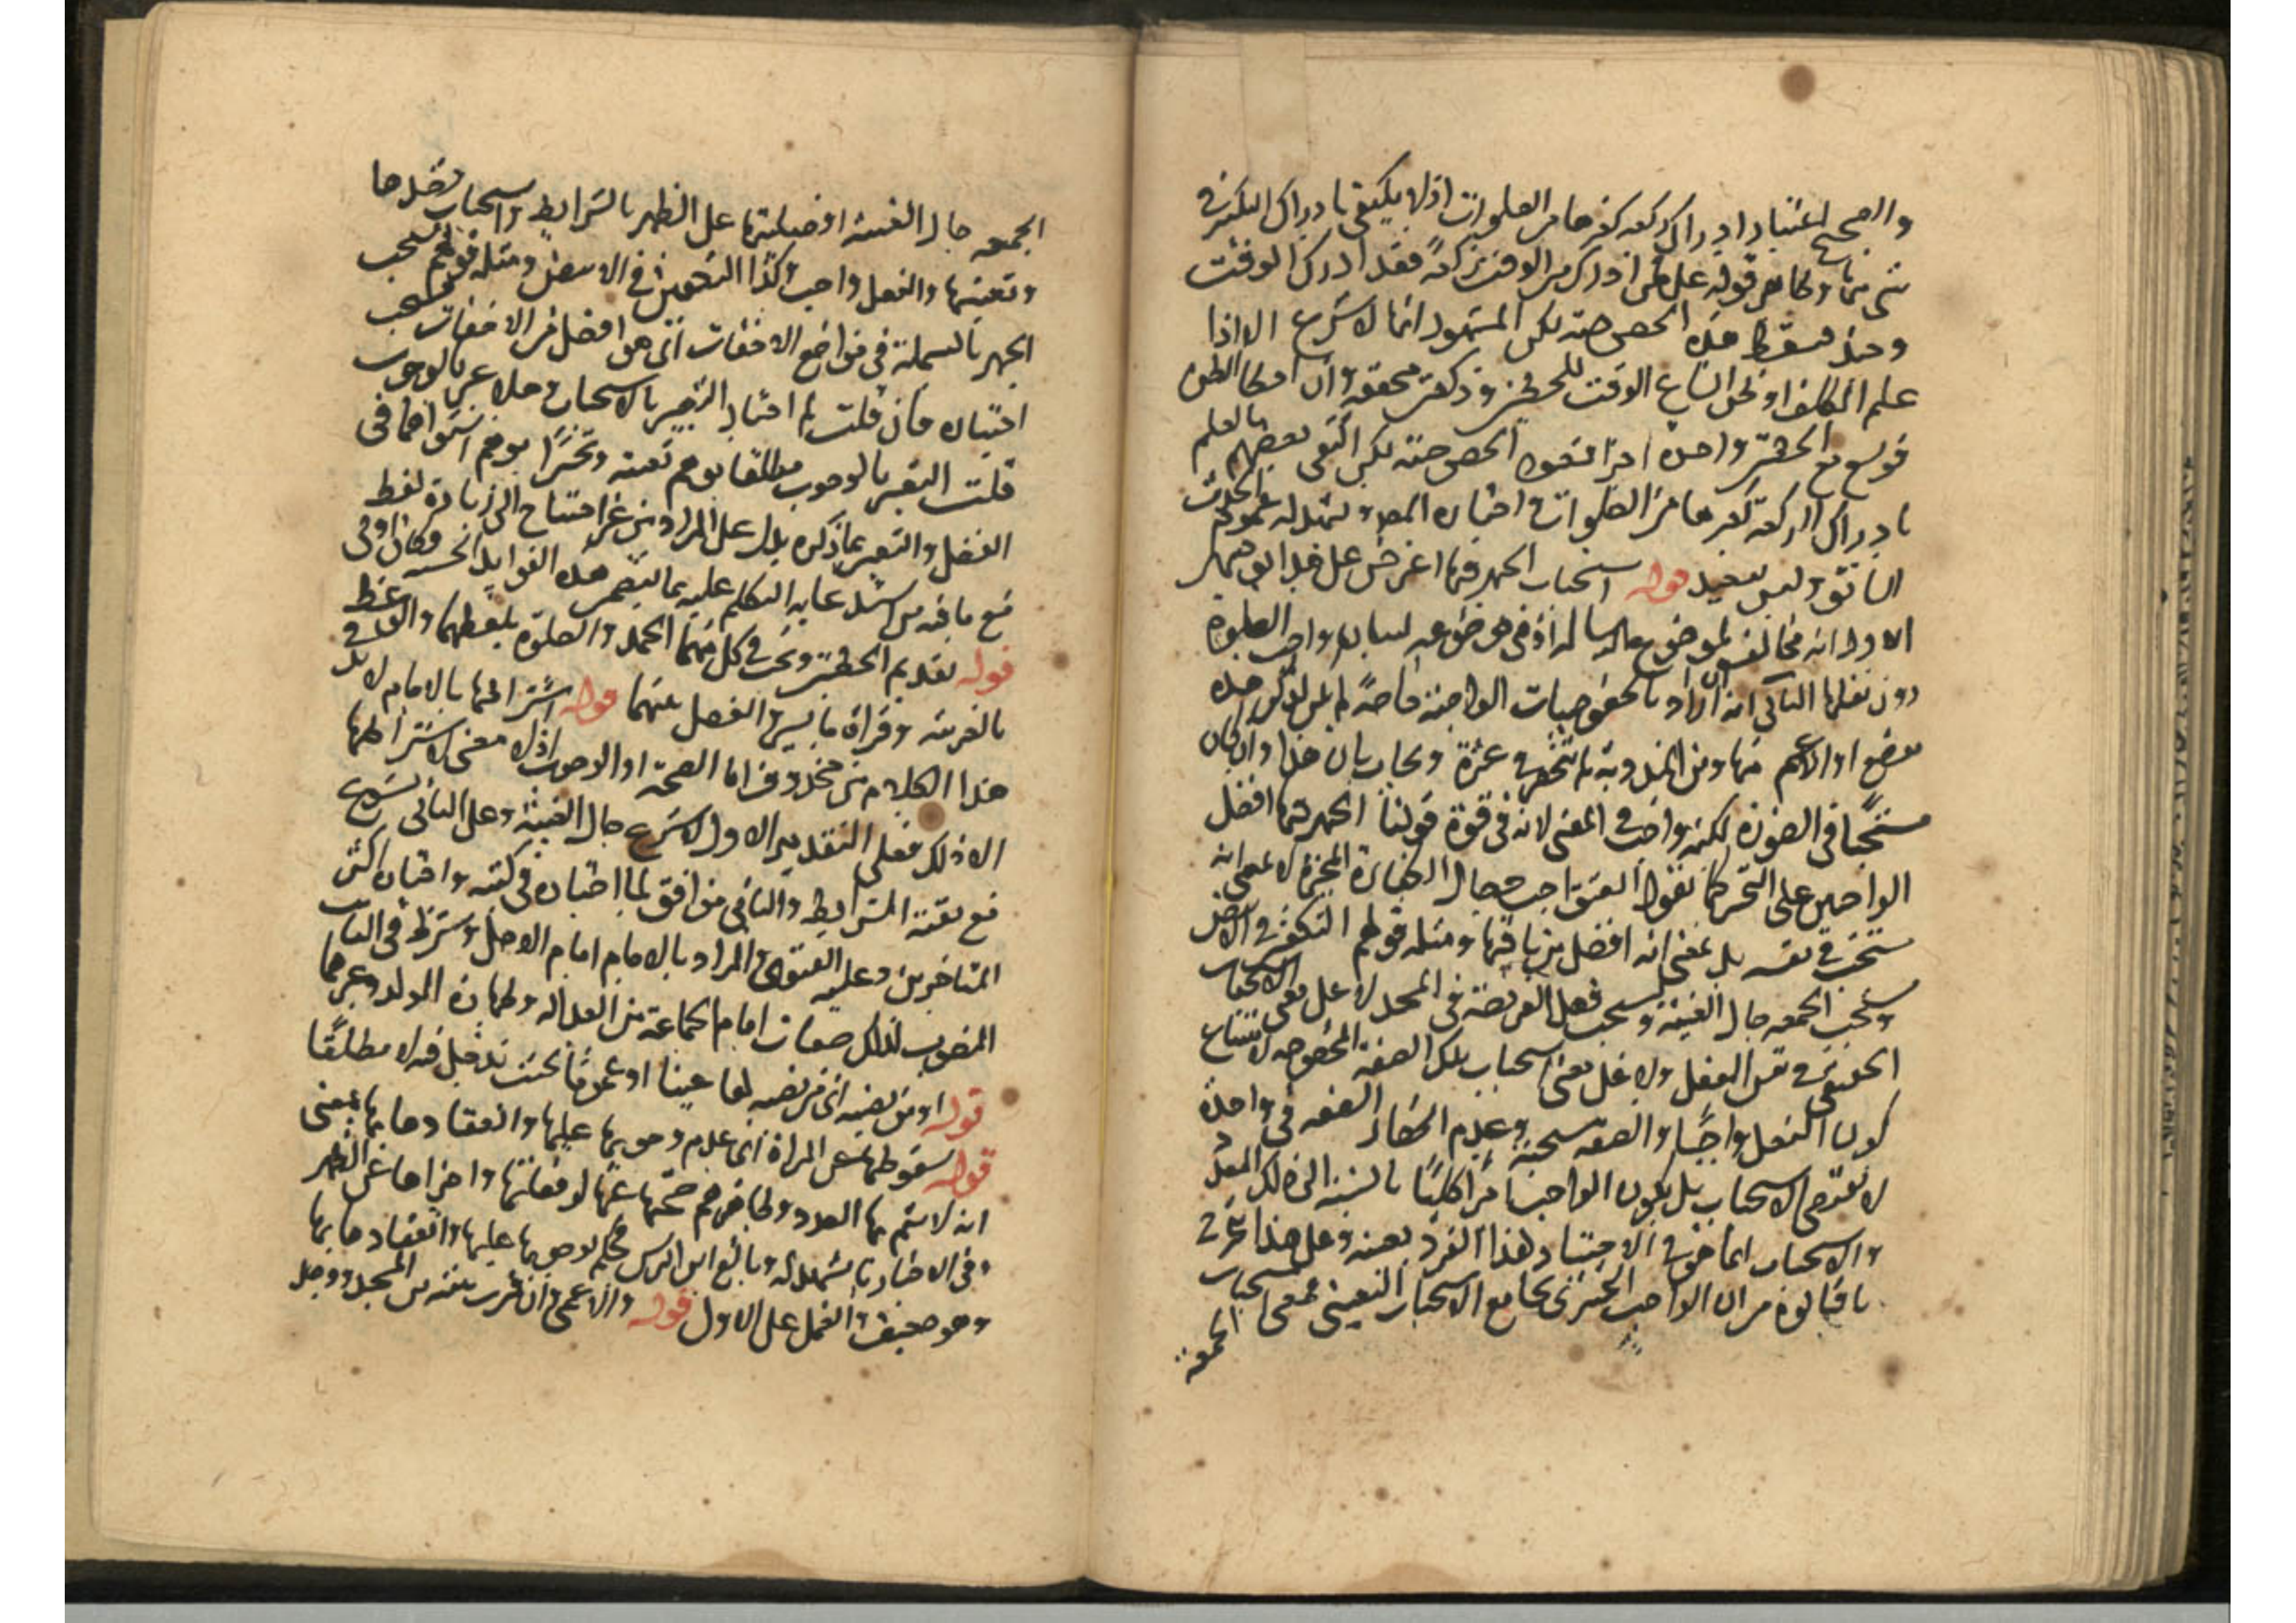 والصحيح اعتبار ادراك ركعة كغيرها من الصلوات اذ لا يكتفى بادراك التكبير في
شيء منها ولظاهر قوله على من ادرك من الوقت ركعة فقد ادرك الوقت
وحينئذ يسقط هذه الخصوصية لكن المشهور انها لا تشرع الا اذا
علم المكلف او ظن اتساع الوقت للخطبتين وركعتين مخففة وان امكنا الظن
فوسع مع الخطبتين واحدة اجزأ فتعود الخصوصية لكن اكتفى بعضهم بالعلم
بادراك الركعة كغيرها من الصلوات في اختياره المص ويشهد له عموم الحديث
السابق وليس ببعيد قوله استحباب الجهر فيها اعترض على
الاول انه مخالف لموضوع الرسالة اذ هي موضوعة لبيان واجب الصلوة
دون نفلها الثاني انه اراد بالخصوصيات الواجبة خاصة لم يكن لذكر هذه
موضع او الاعم منها ومن المندوبة لم تنحصر في عشرة ويجاب بان هذا وان كان
مستحبا في الصورة لكنه واجب في المعنى لانه في قوة قولنا الجهر فيها افضل
الواجبين على التخيير كما نقول العتق واجب في حال الكفارة المخيرة لا بمعنى انه
مستحب في نفسه بل بمعنى انه افضل من باقيها ومثله قولهم التكفين في الافضل
وتستحب الجمعة حال الغيبة ويستحب فعل الفريضة في المسجد لا على معنى الاستحباب
الحقيقي في نفس الفعل ولا على معنى استحباب تلك الصفة المخصوصة لامتناع
كون الفعل واجبا والصفة مستحبة وعدم انحصار الصفة في واحدة
لا يقتضي الاستحباب بل يكون الواجب امرا كليا بالنسبة الى ذلك المتعدد
والاستحباب انما هو في الاختيار لهذا الفرد بعينه وعلى هذا تخرج
ما قالوه من ان الواجب التخييري يجامع الاستحباب التعييني بمعنى استحباب
الجمعة
الجمعة حال الغيبة افضليتها على الظهر بالشرايط واستحباب فعلها
وتعينها والفعل واجب وكذا التكفين في الافضل ومثله قولهم يستحب
الجهر بالبسملة في مواضع الاخفات اي هو افضل من الاخفات فيستحب
اختياره فان قلت لم اختار التعبير بالاستحباب وهلا عبر بالوجوب
قلت التعبير بالوجوب مطلقا يوهم تعينه وتخييرا يوهم استواهما في
الفضل والتعبير بما ذكره يدل على المراد من غير احتياج الى زيادة لفظ
مع ما فيه من استدعائه التكلم عليه بما يتضمن هذه الفوايد الحسنة فكان اولى
قوله تقديم الخطبتين وتجب في كل منهما الحمد والصلوة بلفظهما والوعظ
بالقرينة وقراءة ما تيسر والفصل بينهما قوله اشتراطها بالامام لا بد في
هذا الكلام من محذوف اما الصحة او الوجوب اذ لا معنى لاشتراطها
الا ذلك فعلى التقدير الاول لا تشرع حال الغيبة وعلى الثاني تشرع
مع بقية الشرايط والثاني موافق لما اختاره في كتبه واختاره اكثر
المتاخرين وعليه الفتوى والمراد بالامام امام الاصل وشرط في النايب
المنصوب لذلك صفات امام الجماعة من العدالة وطهارة المولد وغيرهما
قوله او من نصبه اي من نصبه لها عينا او عموما بحيث تدخل فيه لا مطلقا
قوله سقوطها عن المراة اي عدم وجوبها عليها وانعقادها بها بمعنى
انه لا يتم بها العدد ولا خلاف في صحتها عنها لو فعلتها واجزاها عن الظهر
وفي الاخبار ما يشهد له وبالغ ابن ادريس فحكم بوجوبها عليها وانعقادها بها
وهو ضعيف والعمل على الاول قوله والاعمى وان قرب بيته من المسجد ووجد